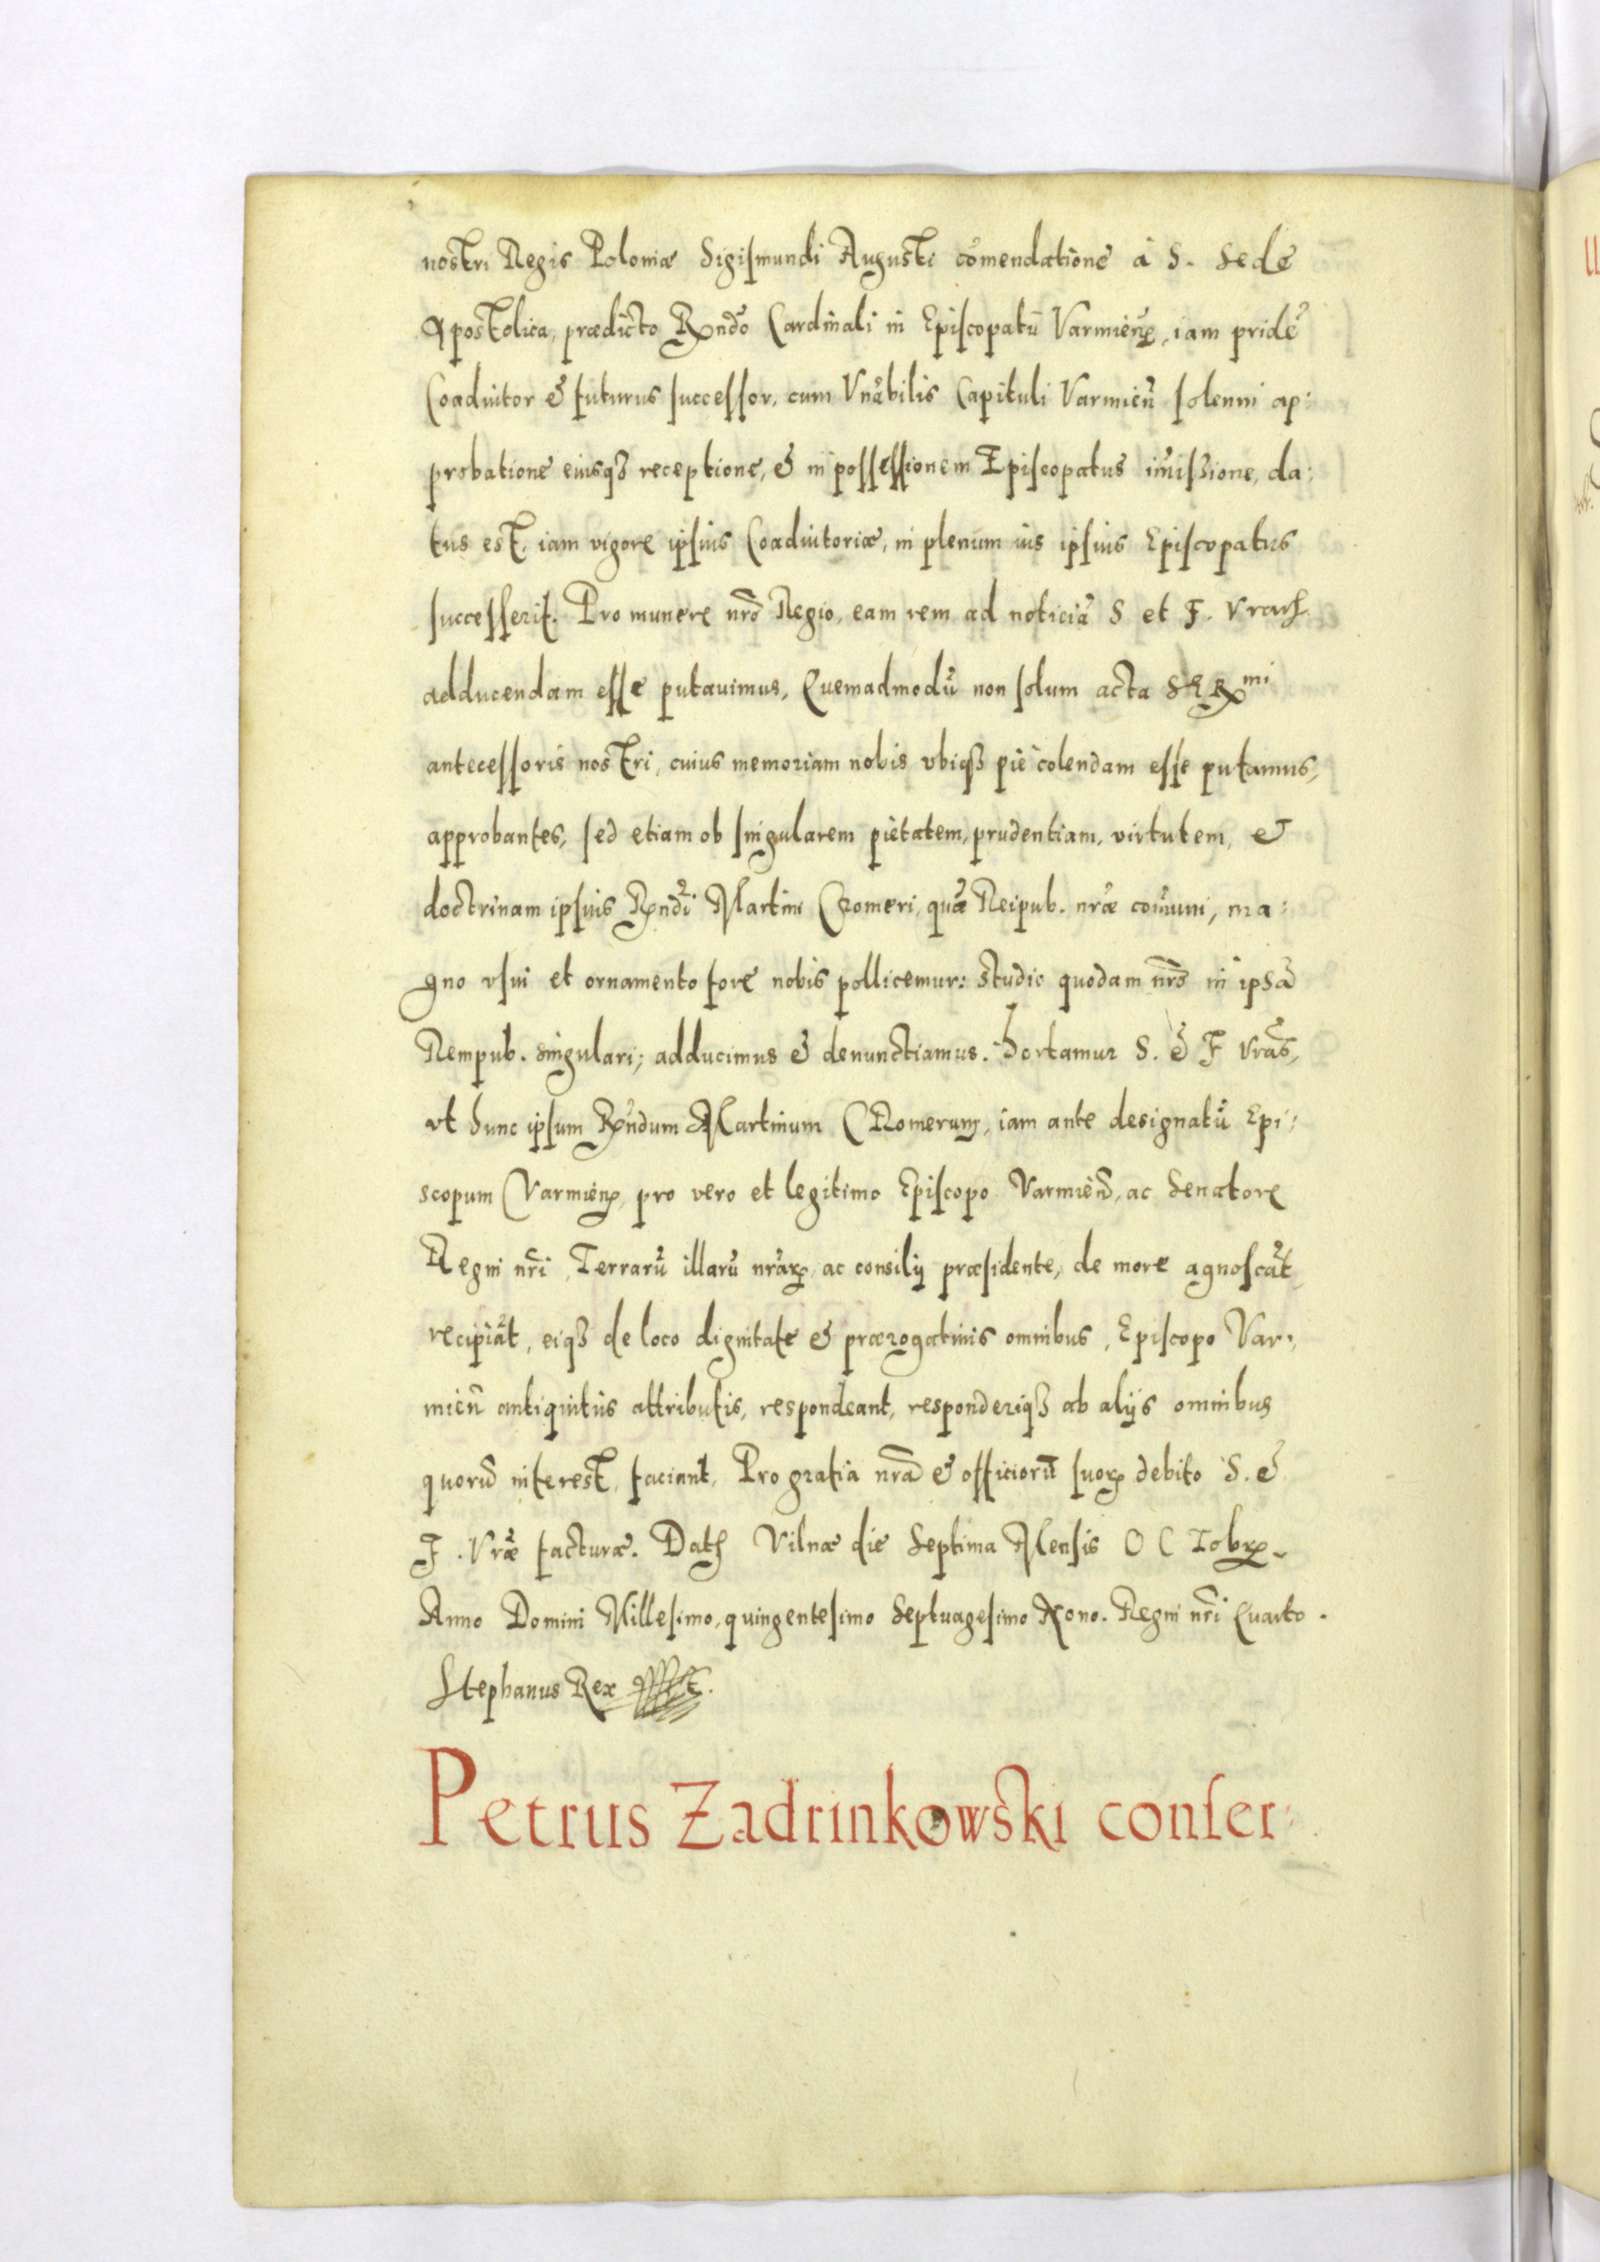 nostri Regis Poloniæ Sigismundi Augusti cõmendatione à S. Sede
Apostolica, prædicto Rñdo Cardinali in Episcopatũ Varmieñ, iam pridẽ
Coadiutor & futurus successor, cum Vñabilis Capituli Varmieñ solenni ap:
probatione eiusq3 receptione, & in possessionem Episcopatus im̃issione, da:
tus est, iam vigore ipsius Coadiutoriæ, in plenum ius ipsius Episcopatus
successerit. Pro munere nr̃o Regio, eam rem ad noticiã S et F. Vrarꝝ
adducendam esse putauimus, Quemadmodũ non solum acta Ser̃mi
antecessoris nostri, cuius memoriam nobis vbiq3 piè colendam esse putamus,
approbantes, sed etiam ob singularem pietatem, prudentiam, virtutem, &
doctrinam ipsius Rñdi Martini Cromeri, quæ Reipub. nr̃æ com̃uni, ma:
gno vsui et ornamento fore nobis pollicemur: studio quodam nr̃o in ipsã
Rempub. singulari; adducimus & denunctiamus. Hortamur S. & F Vrãs,
vt hunc ipsum Rñdum Martinum CRomerum, iam ante designatũ Epi:
scopum Varmieñ, pro vero et legitimo Episcopo Varmieñ, ac Senatore
Regni nr̃i, Terrarũ illarũ nr̃arꝝ, ac consilij præsidente, de more agnoscãt,
recipiãt, eiq3 de loco dignitate & prærogatiuis omnibus, Episcopo Var:
mieñ antiquitùs attributis, respondeant, responderiq3 ab alijs omnibus
quorũ interest, faciant, Pro gratia nr̃a & officiorũ suorꝝ debito S. &
F. Vrã̃e facturæ. Datꝭ Vilnæ die Septima Mensis OCTobrꝭ.
Anno Domini Millesimo, quingentesimo Septuagesimo Nono. Regni nr̃i Quarto.
Stephanus Rex
Petrus Zadrinkowski conser: